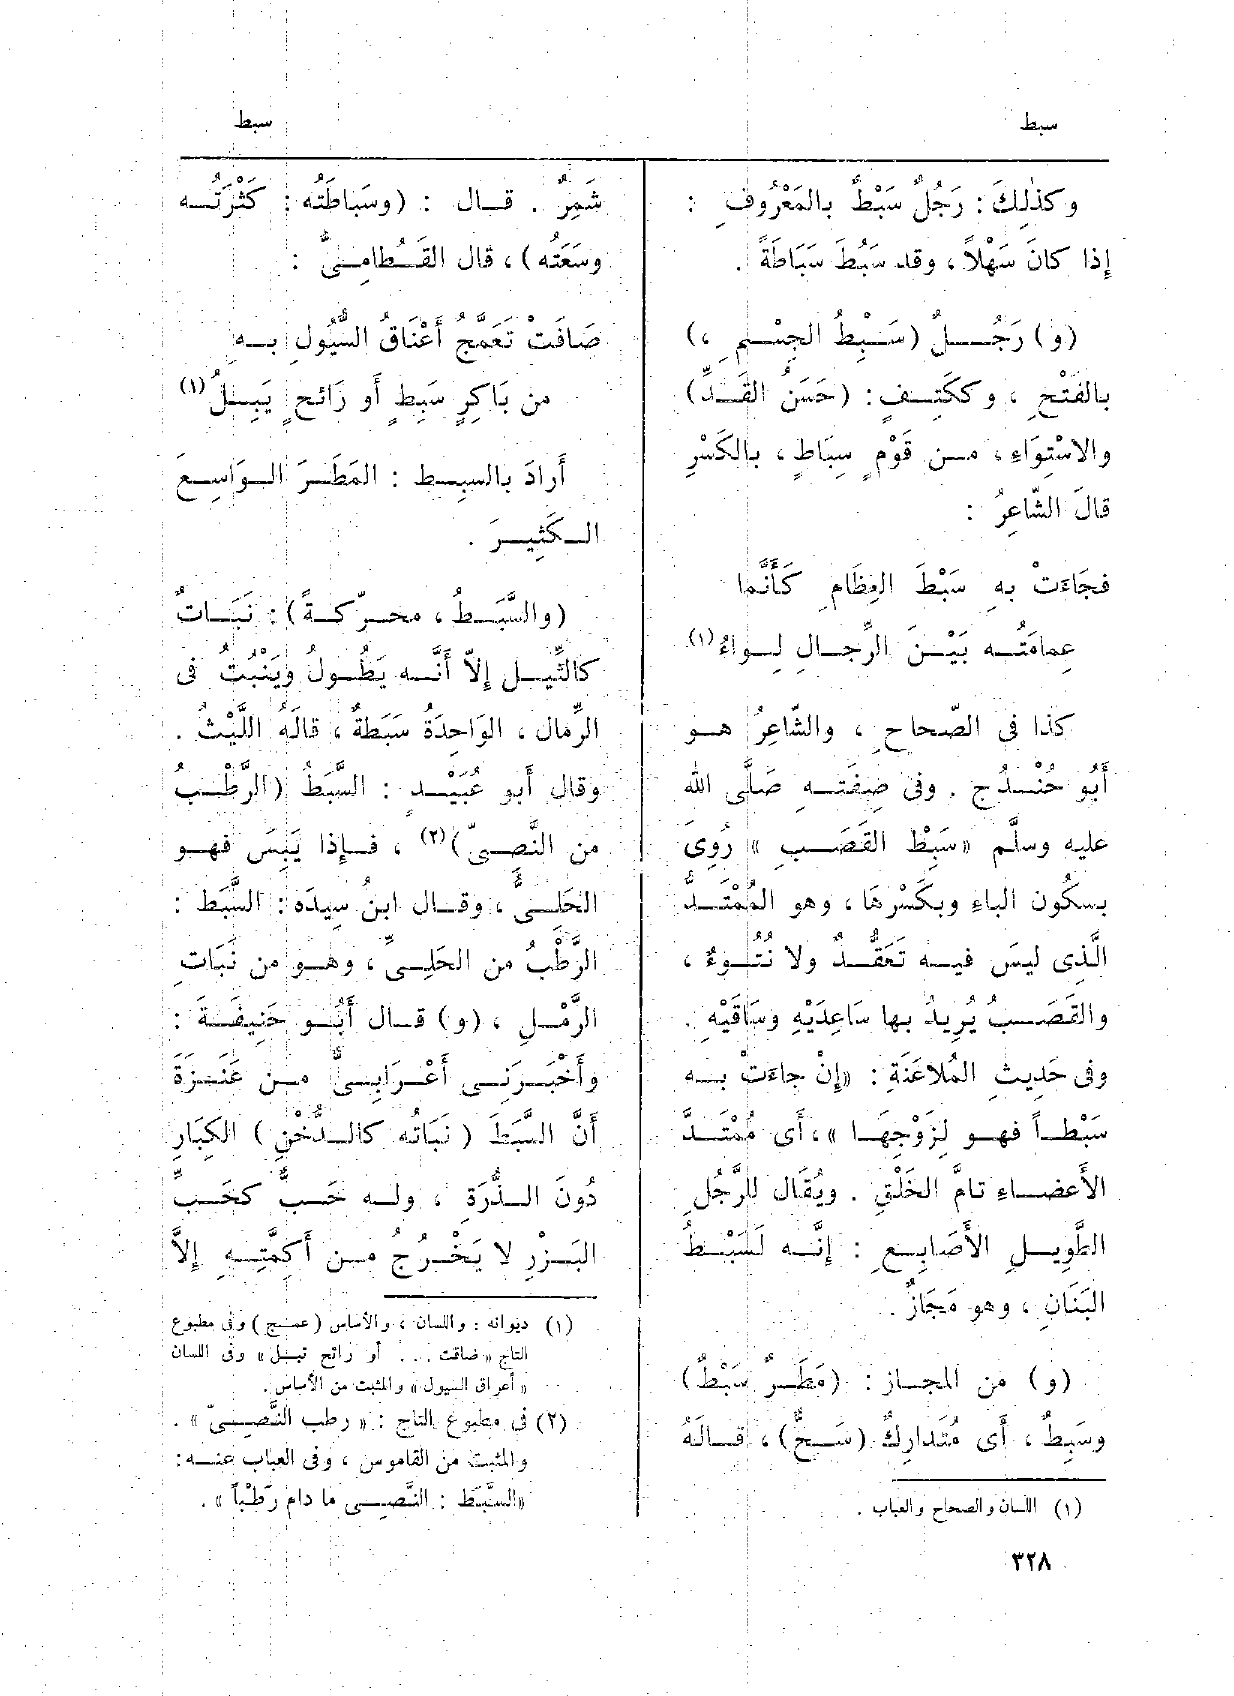 سبط
سبط
وكذٰلِكَ : رَجُلٌ سَبْطٌ بالمَعْرُوفِ :
إذا كانَ سَهْلاً ، وقد سَبُطَ سَبَاطَةً .
(و) رَجُلٌ (سَبِطُ الجِسْمِ ،)
بالفَتْحِ ، وككَتِفٍ : (حَسَنُ القَدِّ)
والاسْتِوَاءِ ، من قَوْمٍ سِبَاطٍ ، بالكَسْرِ
قالَ الشّاعِرُ :
فجَاءَتْ بهِ سَبْطَ العِظَامِ كَأَنَّما
عِمامَتُه بَيْنَ الرِّجالِ لِواءُ (١)
كذا فى الصّحاحِ ، والشّاعِرُ هو
أَبُو حُنْدُجٍ . وفى صِفَتهِ صَلَّى الله
عليه وسلَّم «سَبِطْ القَصَبِ» رُوِىَ
بسكُون الباءِ وبكَسْرِهَا ، وهو المُمْتَدُّ
الَّذِى ليسَ فيه تَعَقُّدٌ ولا نُتُوءٌ ،
والقَصَبُ يُرِيدُ بها سَاعِدَيْهِ وسَاقَيْهِ .
وفى حَدِيثِ المُلاعَنَةِ : «إِنْ جاءَتْ به
سَبْطاً فهو لِزَوْجِهَا» ، أَى مُمْتَدَّ
الأَعضاءِ تامَّ الخَلْقِ . ويُقَال للرَّجُلِ
الطَّوِيلِ الأَصَابِعِ : إِنَّه لَسَبْطُ
البَنَانِ ، وهو مَجَازٌ .
(و) من المجاز : (مَطَرٌ سَبْطٌ)
وسَبِطٌ ، أَى مُتَدارِكٌ (سَحٌّ) ، قالَهُ
(١) اللسان والصحاح والعباب .
شَمِرٌ . قال : (وسَبَاطَتُه : كَثْرَتُه
وسَعَتُه) ، قال القَطامِىُّ :
صَافَتْ تَعَمَّجُ أَعْنَاقُ السُّيُولِ به
من بَاكِرٍ سَبِطٍ أَو رَائحٍ يَبِلُ (١)
أَرادَ بالسبِط : المَطَرَ الوَاسِعَ
الكَثِيرَ .
(والسَّبَطُ ، محرّكةً) : نَبَاتٌ
كالثِّيلِ إلاّ أَنَّه يَطُولُ ويَنْبُتُ فى
الرِّمال ، الوَاحِدَةُ سَبَطَةٌ ، قالَهُ اللَّيْثُ .
وقال أَبو عُبَيْدٍ : السَّبَطُ (الرَّطْبُ
من النَّصِىّ) (٢) ، فإذا يَبِسَ فهو
الحَلِىُّ ، وقال ابنُ سِيدَه : السَّبَط :
الرَّطْبُ من الحَلِىِّ ، وهو من نَبَاتِ
الرَّمْلِ ، (و) قال أَبُو حَنِيفَةَ :
وأَخْبَرَنِى أَعْرَابِىٌّ من عَنَزَةَ
أَنَّ السَّبَطَ (نَبَاتُه كالدُّخْنِ) الكِبَارِ
دُونَ الذُّرَةِ ، وله حَبٌّ كحَبِّ
البَزْرِ لا يَخْرُجُ من أَكِمَّتِهِ إلاَّ
(١) ديوانه : واللسان ، والأساس (عمج) وفى مطبوع
التاج «ضاقت ... أو رائح تبل» وفى اللسان
«أعراق السيول» والمثبت من الأساس .
(٢) فى مطبوع التاج : «رطب النَّصِىّ» .
والمثبت من القاموس ، وفى العباب عنه :
«السَّبَط : النَّصِى ما دام رَطْباً» .
٣٢٨